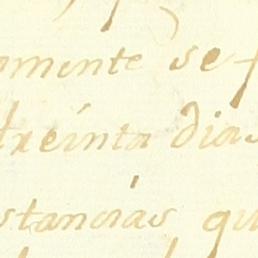 amente se f
treinta dias
stancias qu